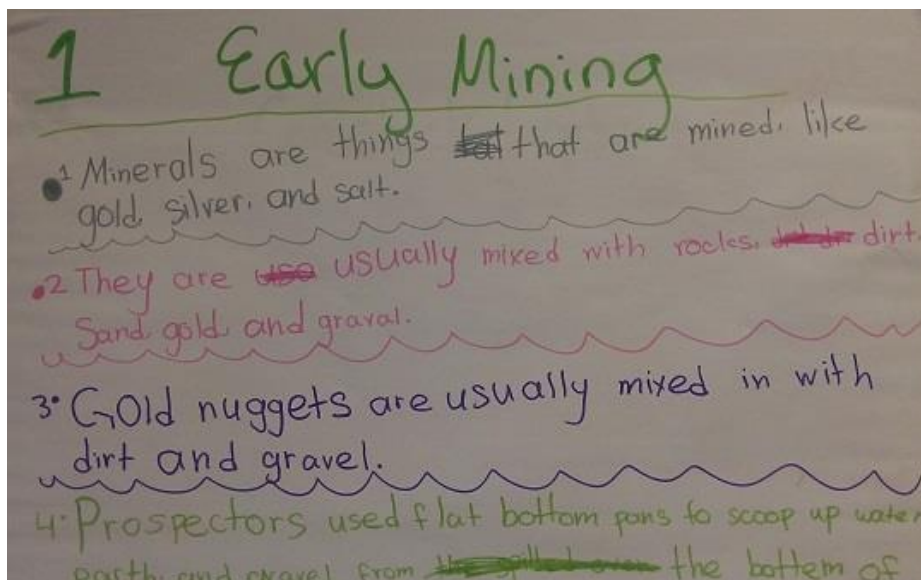 1 Early Mining
1 Minerals are things that are mined, like
gold, silver, and salt.
2 They are usually mixed with rocks, dirt,
Sand, gold, and graval.
3. Gold nuggets are usually mixed in with
dirt and gravel.
4. Prospectors used flat bottom pans to scoop up water,
earth, and gravel from the bottem of